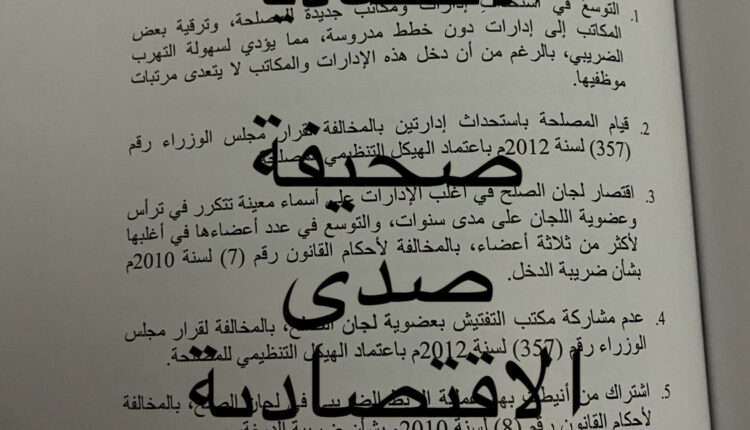 1. التوسع في استحداث إدارات ومكاتب جديدة للمصلحة، وترقية بعض
المكاتب إلى إدارات دون خطط مدروسة، مما يؤدي لسهولة التهرب
الضريبي، بالرغم من أن دخل هذه الإدارات والمكاتب لا يتعدى مرتبات
موظفيها.
2. قيام المصلحة باستحداث إدارتين بالمخالفة لقرار مجلس الوزراء رقم
(357) لسنة 2012م باعتماد الهيكل التنظيمي للمصلحة.
صحيفة
3. اقتصار لجان الصلح في أغلب الإدارات على أسماء معينة تتكرر في ترأس
وعضوية اللجان على مدى سنوات، والتوسع في عدد أعضاءها في أغلبها
لأكثر من ثلاثة أعضاء، بالمخالفة لأحكام القانون رقم (7) لسنة 2010م
بشأن ضريبة الدخل.
صدى
4. عدم مشاركة مكتب التفتيش بعضوية لجان الصلح، بالمخالفة لقرار مجلس
الوزراء رقم (357) لسنة 2012م باعتماد الهيكل التنظيمي للمصلحة.
الاقتصادية
5. اشتراك من أنيطت بهم عملية الربط الضريبي في لجان الصلح، بالمخالفة
لأحكام القانون رقم (8) لسنة 2010م بشأن ضريبة